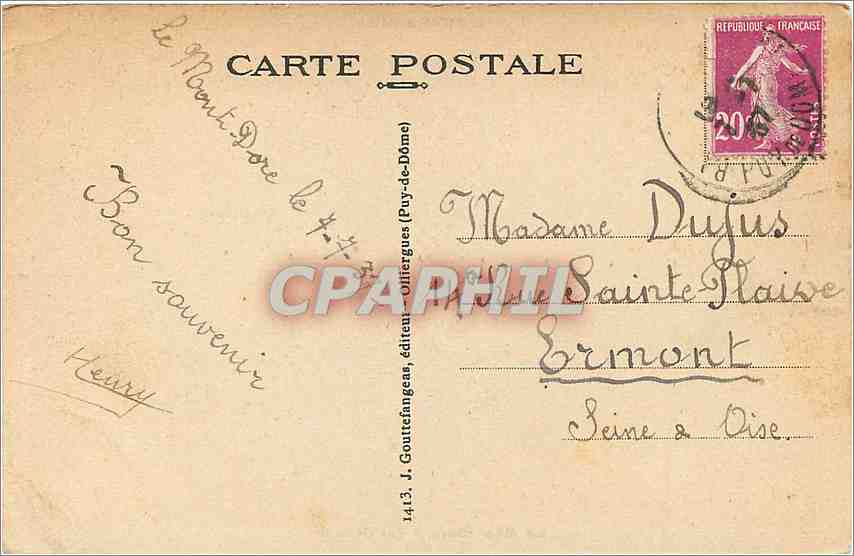 CARTE POSTALE
RÉPUBLIQUE FRANÇAISE
20c
POSTES
Le Mont-Dore le 7-7-3
Bon souvenir
Henry
1413. J. Gouttefangeas, éditeur Olliergues (Puy-de-Dôme)
CPAPHIL
Madame Dufus
Rue Sainte Flaive
Ermont
Seine & Oise.